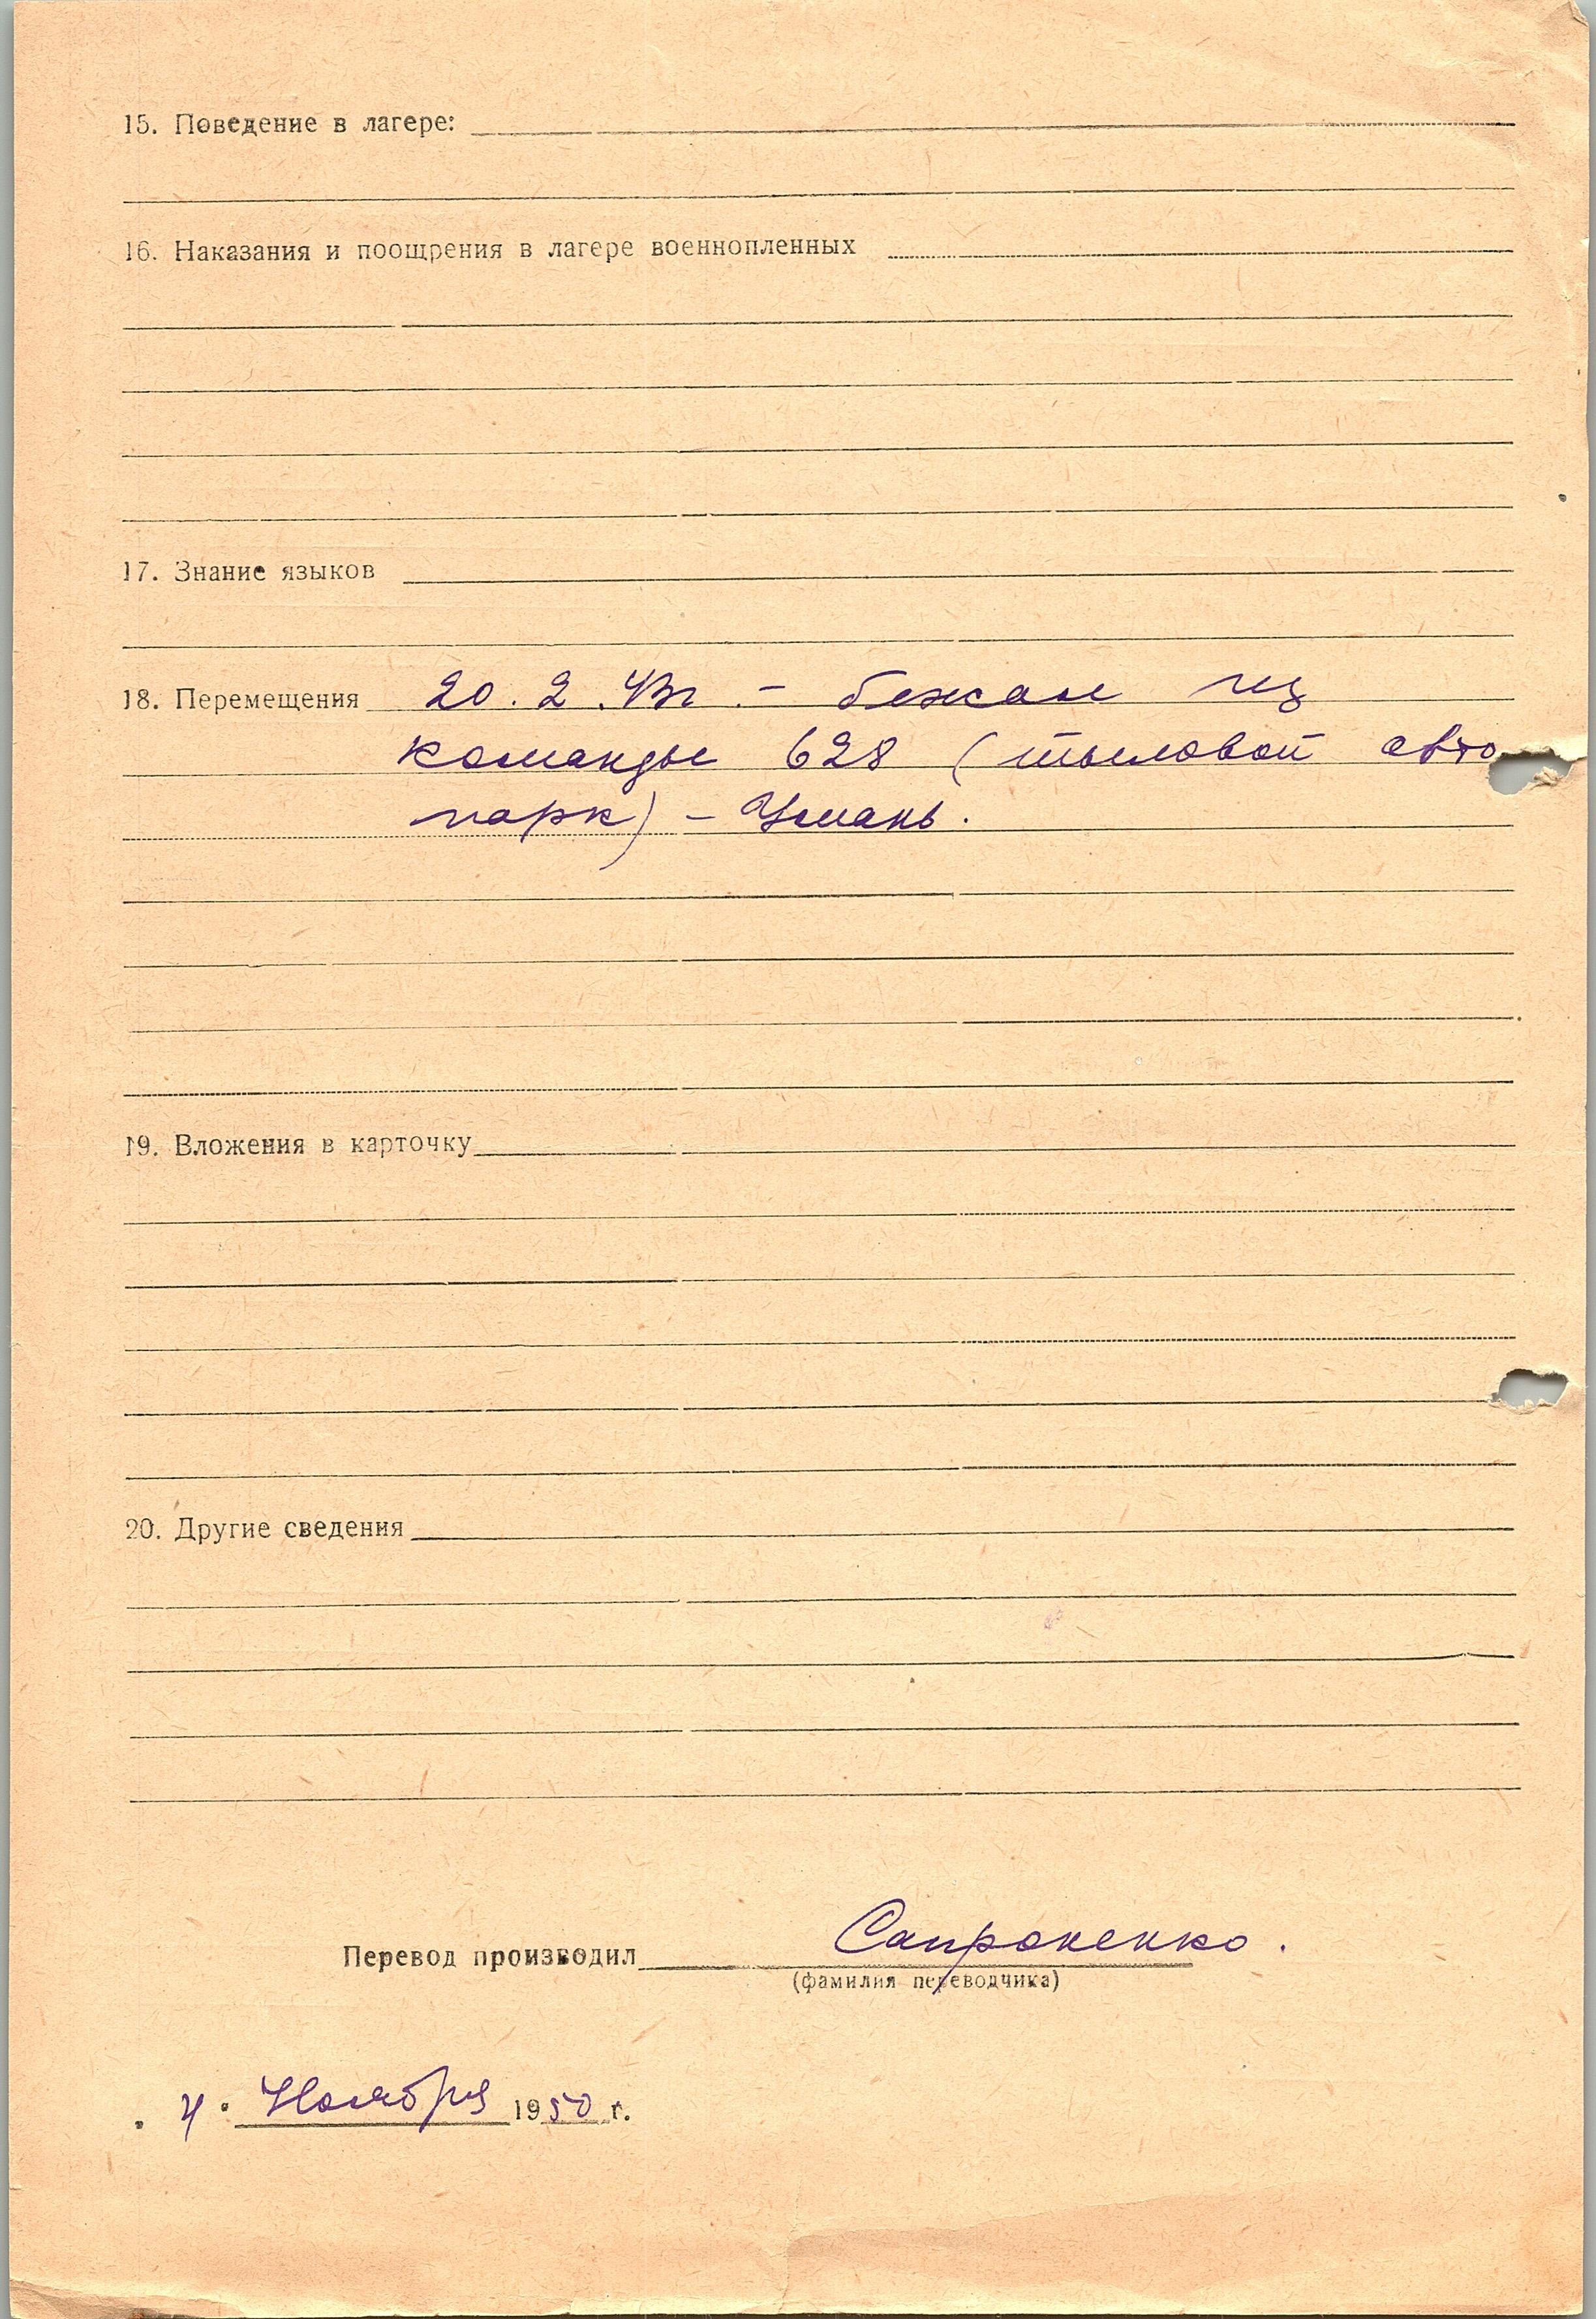 15. Поведение в лагере:
16. Наказания и поощрения в лагере военнопленных
17. Знание языков
18. Перемещения 20.2.43г. – бежал из
команды 628 (тыловой авто
парк) – Умань.
19. Вложения в карточку
20. Другие сведения
Перевод производил Сапроненко.
(фамилия переводчика)
"4" Ноября 1950 г.